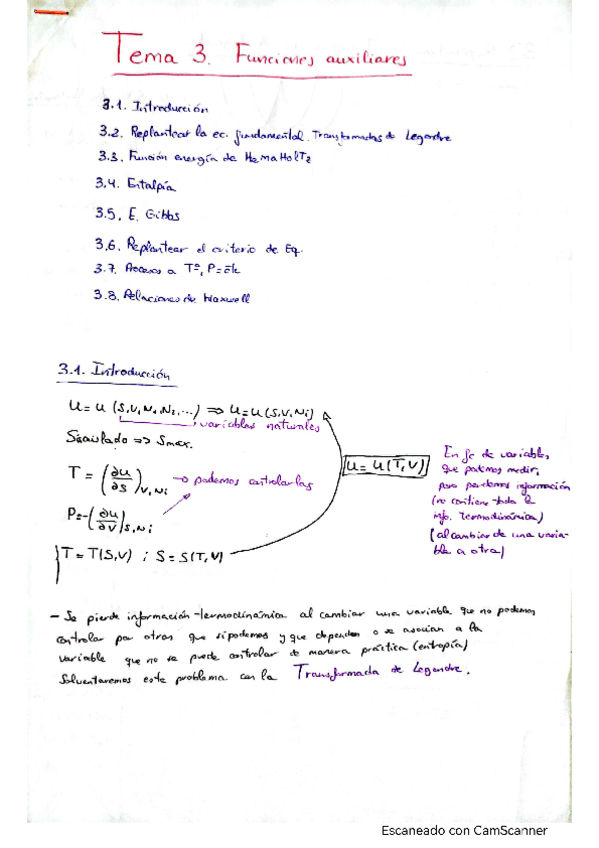 Tema 3. Funciones auxiliares
3.1. Introducción
3.2. Replantear la ec. fundamental. Transformadas de Legendre
3.3. Función energía de HemaHolTz
3.4. Entalpía
3.5. E. Gibbs
3.6. Replantear el criterio de Eq.
3.7. Procesos a Tº, P = Ek
3.8. Relaciones de Maxwell
3.1. Introducción
U = U (S, V, N₁, N₂, ...) ⇒ U = U(S, V, Ni)
variables naturales
Si aislado ⇒ Smax.
T = (∂U/∂S)V, Ni → podemos controlarlas
P = -(∂U/∂V)S, Ni
T = T(S, V) ; S = S(T, V)
U = U(T, V)
En fc de variables
que podemos medir,
pero perdemos información
(no contiene toda la
info. Termodinámica)
(al cambiar de una varia-
ble a otra)
- Se pierde información termodinámica al cambiar una variable que no podemos
controlar por otras que si podemos y que dependen o se asocian a la
variable que no se puede controlar de manera práctica (entropía)
Solventaremos este problema con la Transformada de Legendre.
Escaneado con CamScanner